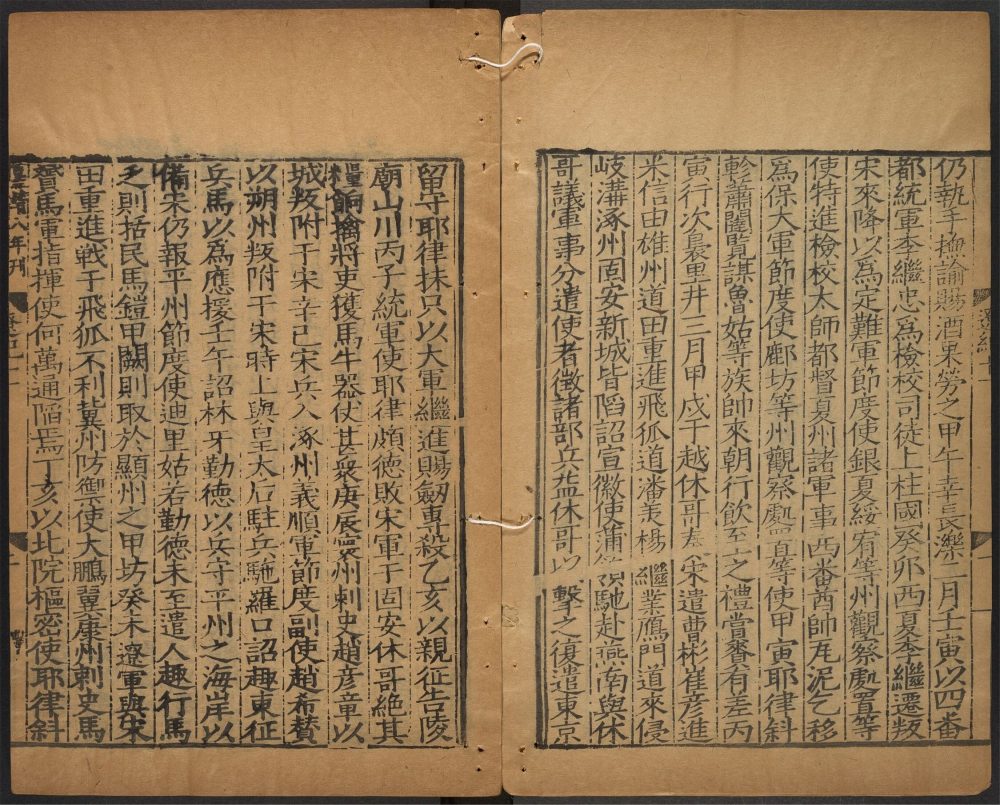 遼紀十一
仍執手撫諭賜酒果勞之甲午幸長濼二月壬寅以四番
都統軍李繼忠爲檢校司徒上柱國癸卯西夏李繼遷叛
宋來降以爲定難軍節度使銀夏綏宥等州觀察處置等
使特進檢校太師都督夏州諸軍事西番酋帥瓦泥乞移
爲保大軍節度使鄜坊等州觀察處置等使甲寅耶律斜
軫蕭闥覽謀魯姑等族帥來朝行飲至之禮賞賚有差丙
寅行次裊里井三月甲戌于越休哥奏宋遣曹彬崔彦進
米信由雄州道田重進飛狐道潘美楊繼業鴈門道來侵
岐溝涿州固安新城皆陷詔宣徽使蒲領馳赴燕南與休
哥議軍事分遣使者徵諸部兵益休哥以擊之復遣東京
留守耶律抹只以大軍繼進賜劒專殺乙亥以親征告陵
廟山川丙子統軍使耶律頗德敗宋軍于固安休哥絶其
糧餉擒將吏獲馬牛器仗甚衆庚辰寰州刺史趙彦章以
城叛附于宋辛巳宋兵入涿州義順軍節度副使趙希賛
以朔州叛附于宋時上與皇太后駐兵駞羅口詔趣東征
兵馬以爲應援壬午詔林牙勤德以兵守平州之海岸以
備宋仍報平州節度使迪里姑若勤德未至遣人趣行馬
乏則括民馬鎧甲闕則取於顯州之甲坊癸未遼軍與宋
田重進戰于飛狐不利冀州防禦使大鵬翼康州刺史馬
贇馬軍指揮使何萬通陷焉丁亥以北院樞密使耶律斜
嘉靖八年刊